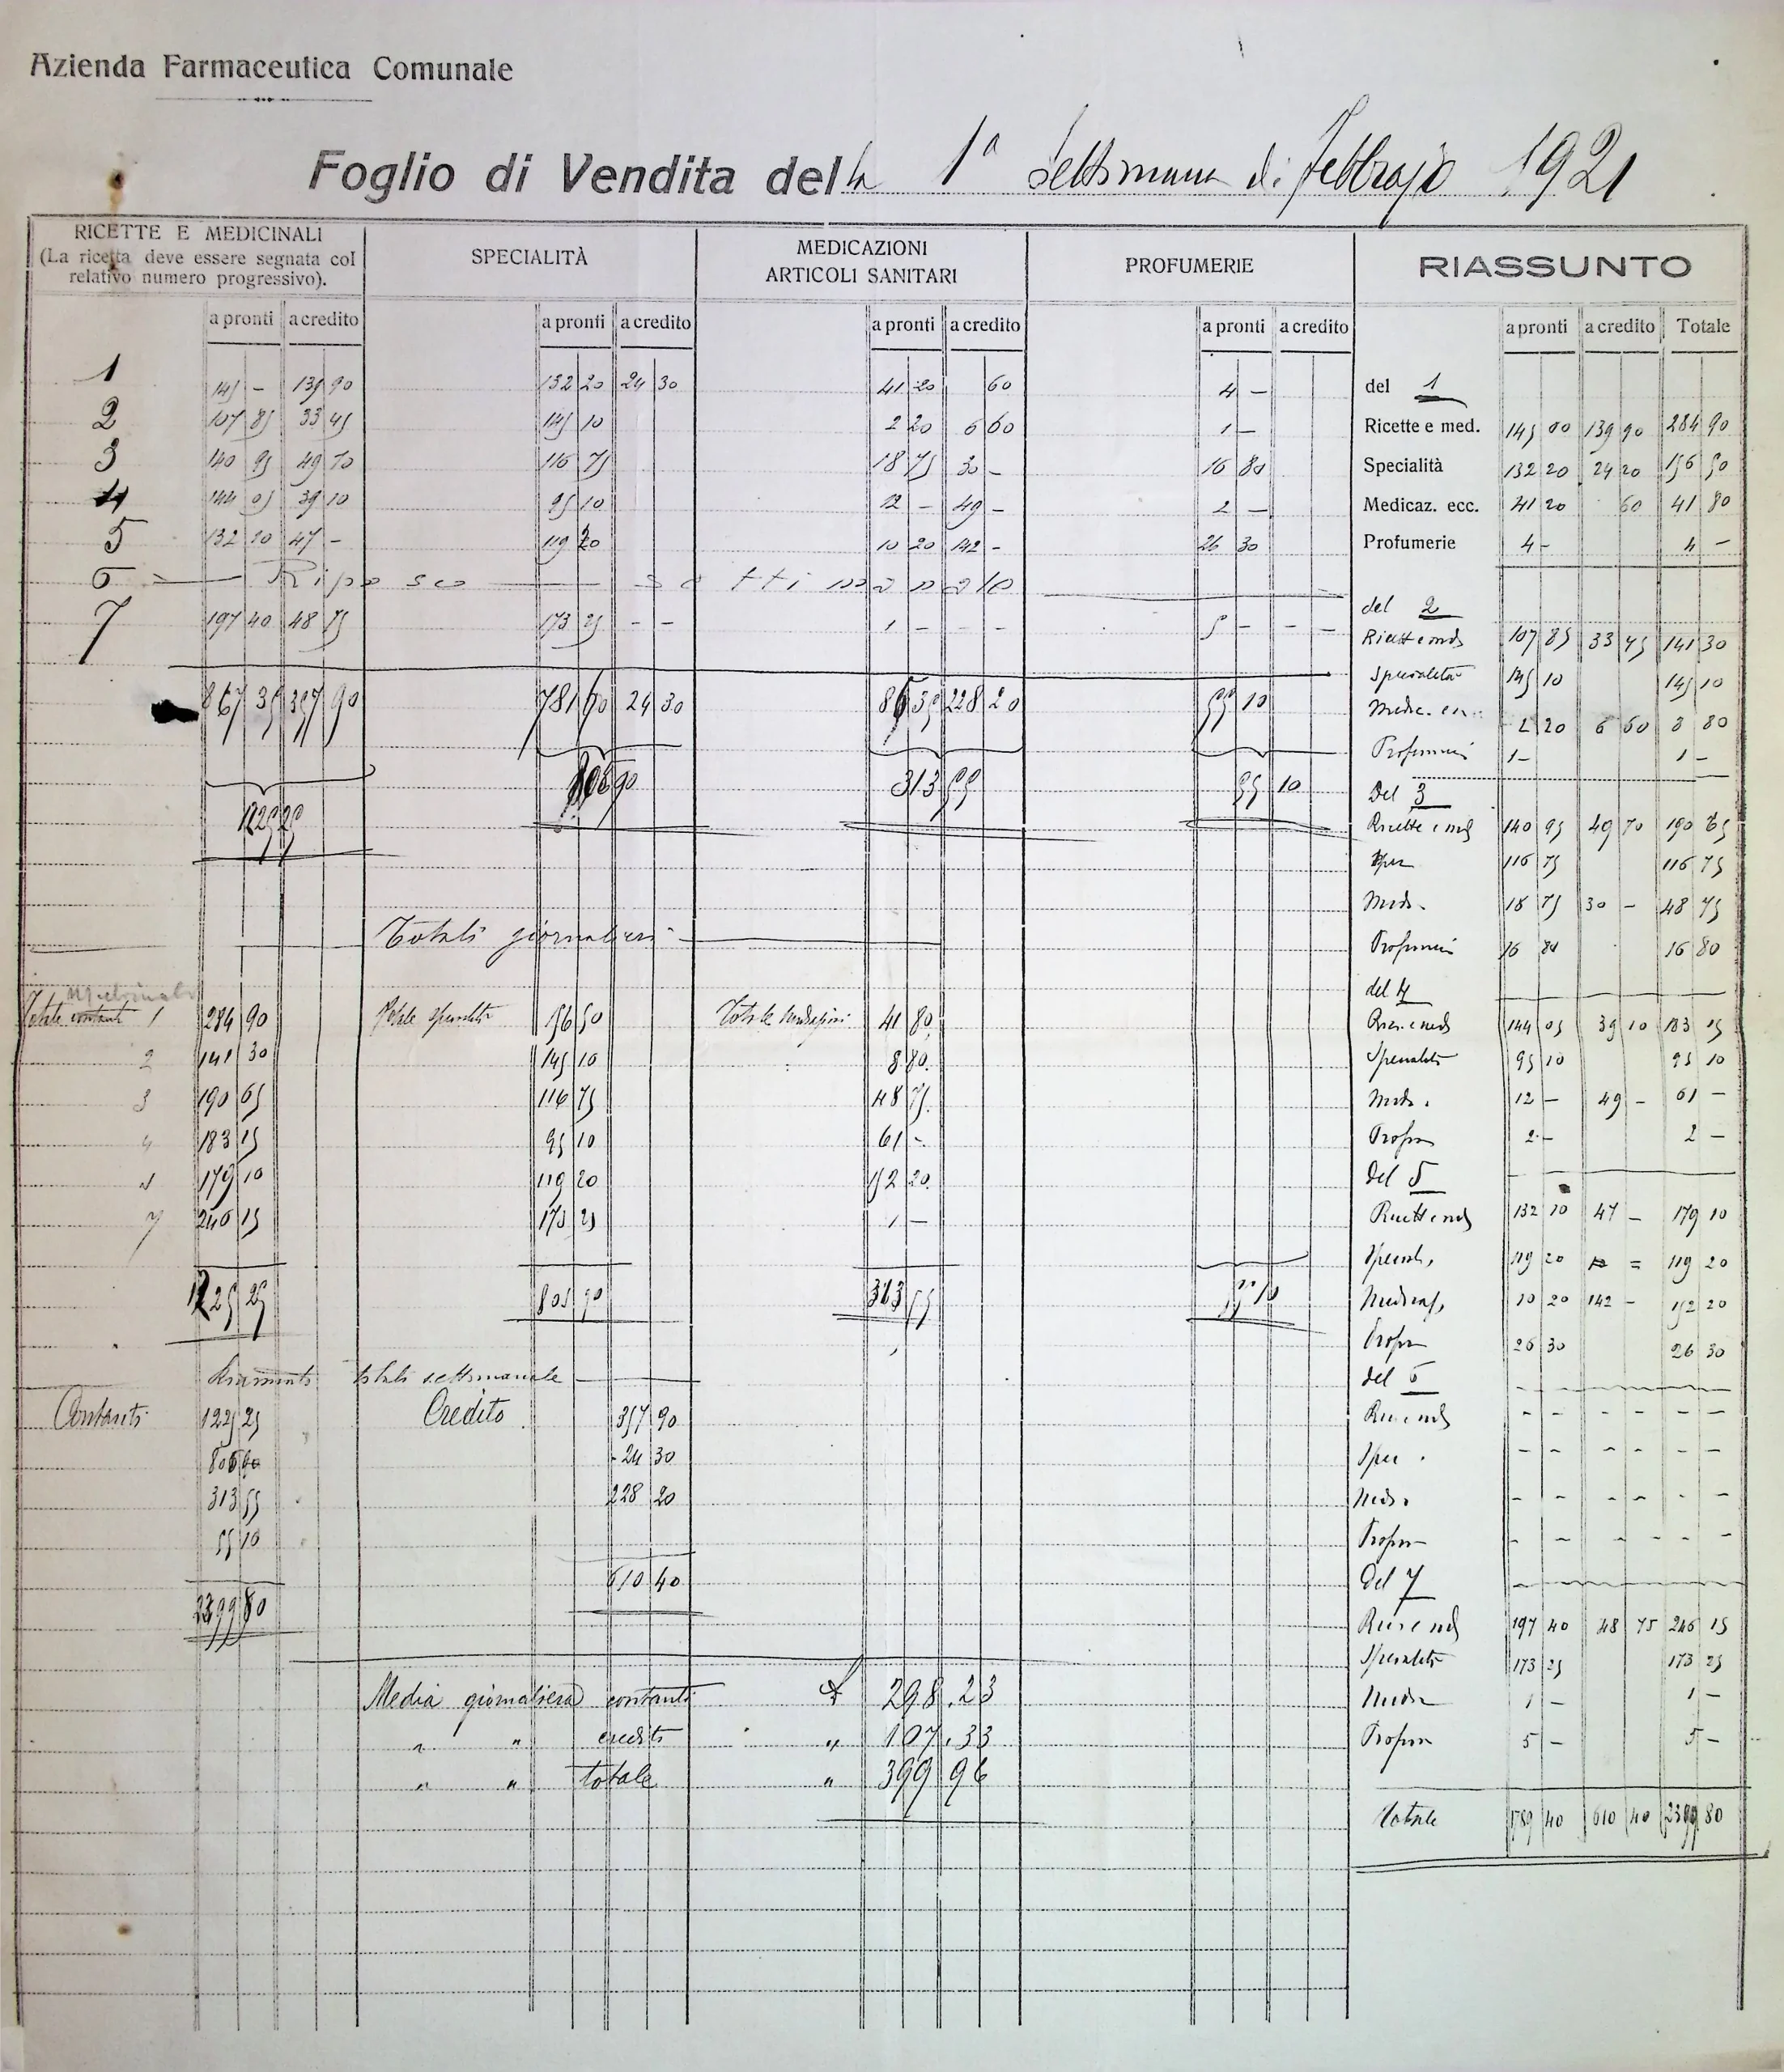 Azienda Farmaceutica Comunale
Foglio di Vendita della 1ª Settimana di Febbrajo 1921
RICETTE E MEDICINALI
(La ricetta deve essere segnata col
relativo numero progressivo).
SPECIALITÀ
MEDICAZIONI
ARTICOLI SANITARI
PROFUMERIE
RIASSUNTO
a pronti a credito a pronti a credito a pronti a credito a pronti a credito a pronti a credito Totale
1 145 - 139 90 132 20 24 30 41 20 60 4 -
2 107 85 33 45 145 10 2 20 6 60 1 -
3 140 95 49 70 116 75 18 75 30 - 16 80
4 144 05 39 10 95 10 12 - 49 - 2 -
5 132 10 47 - 119 20 10 20 142 - 26 30
6 Riposo settimanale
7 197 40 48 75 173 25 - - 1 - - - 5 - - -
867 35 357 90 781 60 24 30 85 35 228 20 55 10
1225 25 805 90 313 55 55 10
Totali giornalieri
Medicinali
Totale contanti 1 284 90 Totale specialità 156 50 Totale medicazioni 41 80
2 141 30 145 10 8 80
3 190 65 116 75 48 75
4 183 15 95 10 61 -
5 179 10 119 20 152 20
7 246 15 173 25 1 -
1225 25 805 90 313 55 55 10
Riassunto totali settimanale
Contanti 1225 25 Credito 357 90
805 90 24 30
313 55 228 20
55 10
610 40
2399 80
Media giornaliera contanti £ 298.23
" " credito " 107.33
" " totale " 399 96
del 1
Ricette e med. 145 00 139 90 284 90
Specialità 132 20 24 20 156 50
Medicaz. ecc. 41 20 60 41 80
Profumerie 4 - 4 -
del 2
Ricette e med 107 85 33 45 141 30
Specialità 145 10 145 10
Medic. ecc. 2 20 6 60 8 80
Profumerie 1 - 1 -
Del 3
Ricette e med 140 95 49 70 190 65
Spec 116 75 116 75
Med. 18 75 30 - 48 75
Profumerie 16 80 16 80
del 4
Ric. e med 144 05 39 10 183 15
Specialità 95 10 95 10
Med. 12 - 49 - 61 -
Profum 2 - 2 -
Del 5
Ricett e med 132 10 47 - 179 10
Special. 119 20 = 119 20
Medicaz. 10 20 142 - 152 20
Profum 26 30 26 30
del 6
Ric e med - - - - - -
Spec. - - - - - -
Med. - - - - - -
Profum - - - - - -
Del 7
Ric e med 197 40 48 75 246 15
Specialità 173 25 173 25
Medic 1 - 1 -
Profum 5 - 5 -
Totale 1789 40 610 40 2399 80